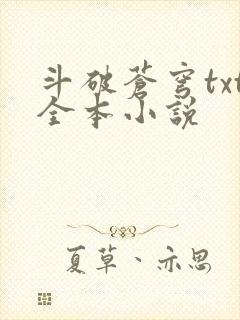 斗破蒼穹txt
全本小說
夏草、亦思